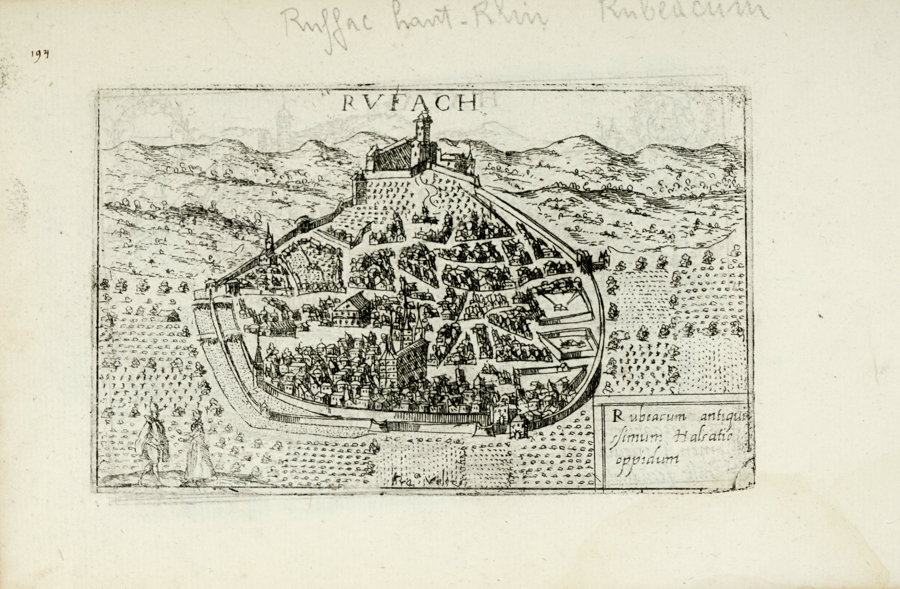 Ruffac haut-Rhin Rubeacum
194
RVFACH
Rubeacum antiqui
ssimum Halsatie
oppidum